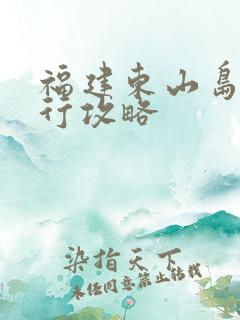 福建东山岛
行攻略
染指天下
未经同意禁止转载